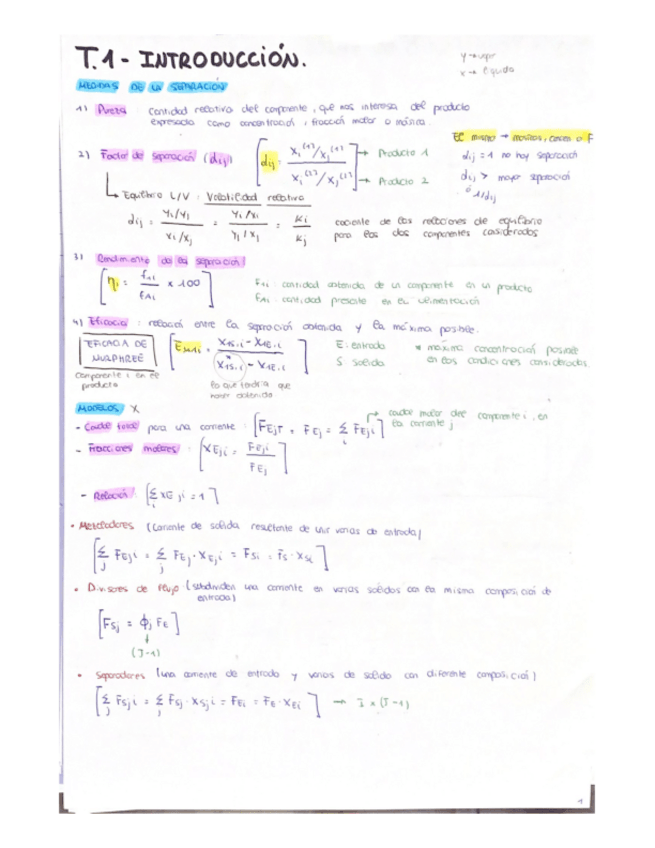 T.1 - INTRODUCCIÓN.
y → vapor
x → líquido
MEDIDAS DE LA SEPARACIÓN
1) Pureza: Cantidad relativa del componente, que nos interesa del producto
expresada como concentración, fracción molar o másica.
EC mismo → másicos, concen o F
2) Factor de separación (αij) [αij = xi⁽¹⁾/xj⁽¹⁾ → Producto 1
xi⁽²⁾/xj⁽²⁾] → Producto 2
αij = 1 no hay separación
αij > mayor separación
ó 1/αij
Equilibrio L/V: Volatilidad relativa
αij = (yi/yj)/(xi/xj) = (yi/xi)/(yj/xj) = Ki/Kj cociente de las relaciones de equilibrio
para los dos componentes considerados
3) Rendimiento de la separación
[ηi = f1i/fAi x 100]
F1i: cantidad obtenida de un componente en un producto
FAi: cantidad presente en la alimentación
4) Eficacia: relación entre la separación obtenida y la máxima posible.
EFICACIA DE
MURPHREE
[EMi = (x1S,i - x1E,i)/(x*1S,i - x1E,i)]
E: entrada
S: salida
* máxima concentración posible
en las condiciones consideradas.
Componente i en el
producto
lo que tendría que
haber obtenido.
MODELOS X
- Caudal total para una corriente: [FEjT = FEj = Σi FEji] → caudal molar del componente i, en
la corriente j
- Fracciones molares: [XEji = FEji/FEj]
- Relación: [Σi XEji = 1]
• Mezcladores (Corriente de salida resultante de unir varias de entrada)
[Σj FEji = Σj FEj · XEji = FSi = FS · XSi]
• Divisores de flujo (subdividen una corriente en varias salidas con la misma composición de
entrada)
[FSj = ϕj FE]
↓
(J-1)
• Separadores (una corriente de entrada y varias de salida con diferente composición)
[Σj FSji = Σj FSj · XSji = FEi = FE · XEi] → I x (J-1)
1